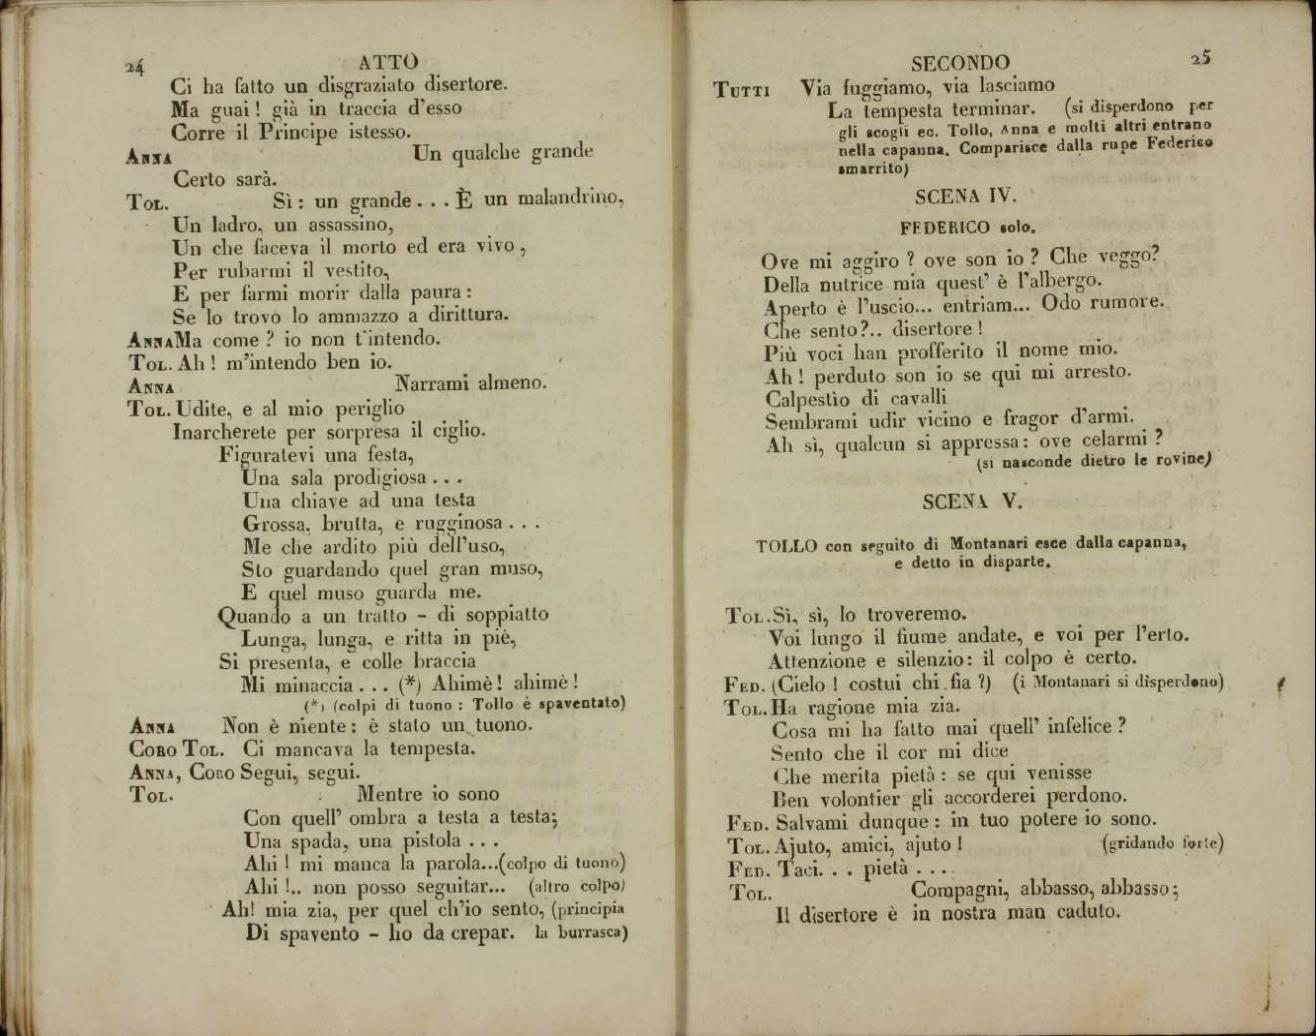 24 ATTO
Ci ha fatto un disgraziato disertore.
Ma guai! già in traccia d'esso
Corre il Principe istesso.
ANNA Un qualche grande
Certo sarà.
TOL. Sì: un grande... È un malandrino,
Un ladro, un assassino,
Un che faceva il morto ed era vivo,
Per rubarmi il vestito,
E per farmi morir dalla paura:
Se lo trovo lo ammazzo a dirittura.
ANNA Ma come? io non t'intendo.
TOL. Ah! m'intendo ben io.
ANNA Narrami almeno.
TOL. Udite, e al mio periglio
Inarcherete per sorpresa il ciglio.
Figuratevi una festa,
Una sala prodigiosa...
Una chiave ad una testa
Grossa, brutta, e rugginosa...
Me che ardito più dell'uso,
Sto guardando quel gran muso,
E quel muso guarda me.
Quando a un tratto - di soppiatto
Lunga, lunga, e ritta in piè,
Si presenta, e colle braccia
Mi minaccia... (*) Ahimè! ahimè!
(*) (colpi di tuono: Tollo è spaventato)
ANNA Non è niente: è stato un tuono.
CORO TOL. Ci mancava la tempesta.
ANNA, CORO Segui, segui.
TOL. Mentre io sono
Con quell' ombra a testa a testa;
Una spada, una pistola...
Ahi! mi manca la parola...(colpo di tuono)
Ahi!.. non posso seguitar... (altro colpo)
Ah! mia zia, per quel ch'io sento, (principia
Di spavento - ho da crepar. la burrasca)
SECONDO 25
TUTTI Via fuggiamo, via lasciamo
La tempesta terminar. (si disperdono per
gli scogli ec. Tollo, Anna e molti altri entrano
nella capanna. Comparisce dalla rupe Federico
smarrito)
SCENA IV.
FEDERICO solo.
Ove mi aggiro? ove son io? Che veggo?
Della nutrice mia quest' è l'albergo.
Aperto è l'uscio... entriam... Odo rumore.
Che sento?.. disertore!
Più voci han profferito il nome mio.
Ah! perduto son io se qui mi arresto.
Calpestìo di cavalli
Sembrami udir vicino e fragor d'armi.
Ah sì, qualcun si appressa: ove celarmi?
(si nasconde dietro le rovine)
SCENA V.
TOLLO con seguito di Montanari esce dalla capanna,
e detto in disparte.
TOL. Sì, sì, lo troveremo.
Voi lungo il fiume andate, e voi per l'erto.
Attenzione e silenzio: il colpo è certo.
FED. (Cielo! costui chi fia?) (i Montanari si disperdono)
TOL. Ha ragione mia zia.
Cosa mi ha fatto mai quell' infelice?
Sento che il cor mi dice
Che merita pietà: se qui venisse
Ben volontier gli accorderei perdono.
FED. Salvami dunque: in tuo potere io sono.
TOL. Ajuto, amici, ajuto! (gridando forte)
FED. Taci... pietà...
TOL. Compagni, abbasso, abbasso;
Il disertore è in nostra man caduto.